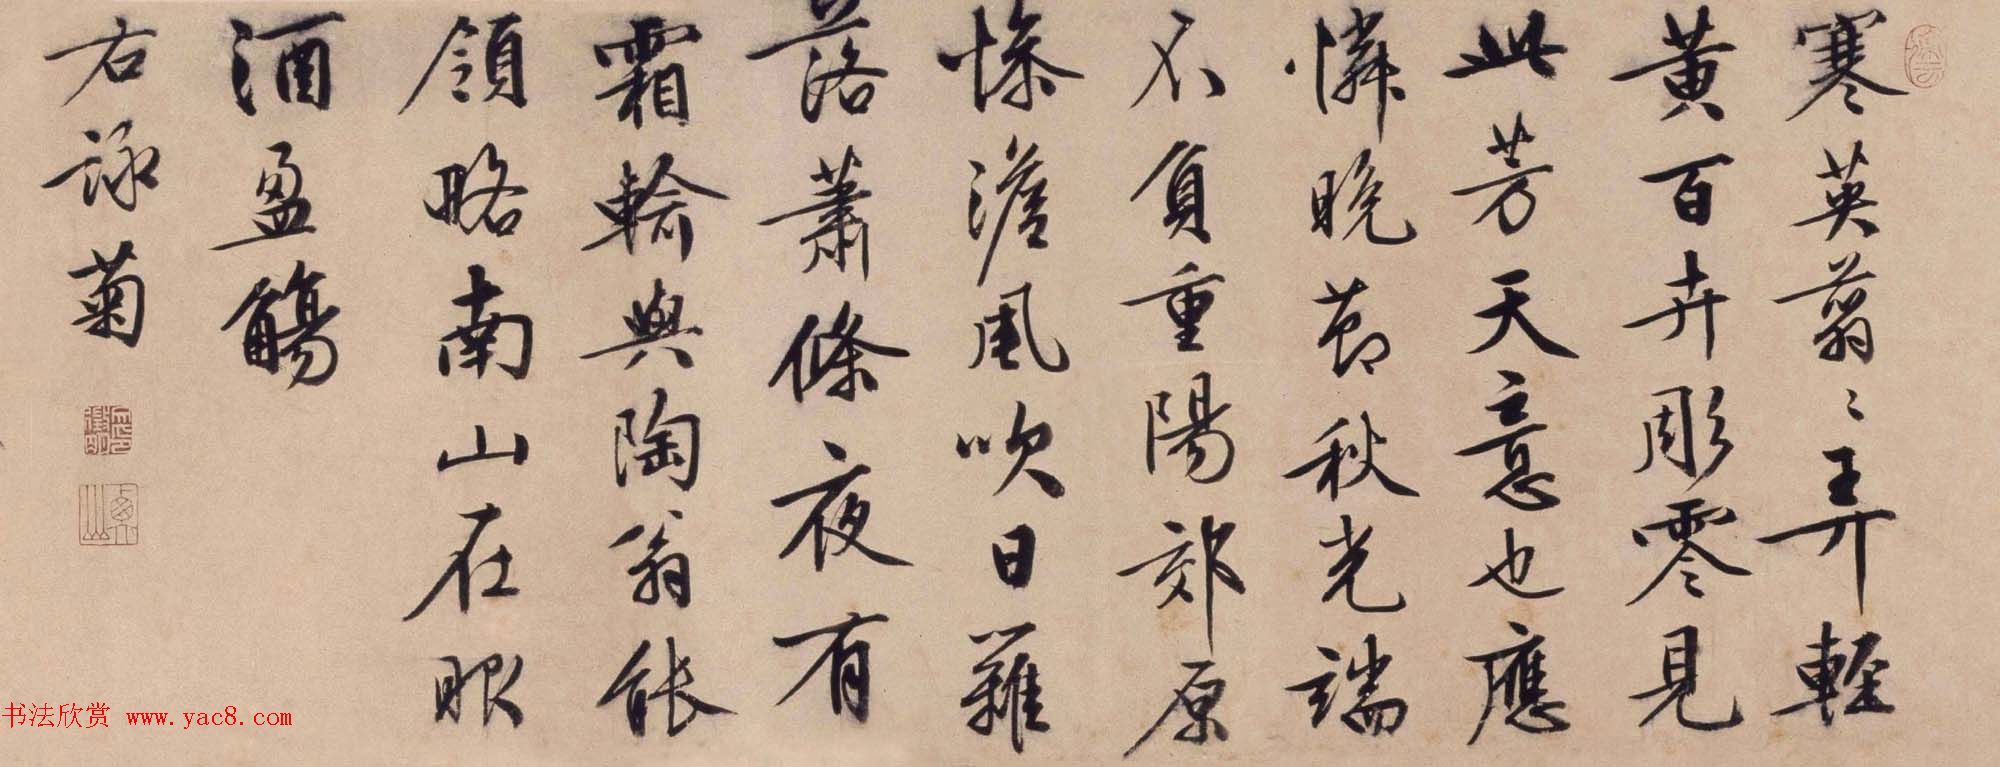 寒英翦〻弄輕
黄百卉彫零見
此芳天意也應
憐晚節秋光端
不負重陽郊原
慘澹風吹日籬
落蕭條夜有
霜輸與陶翁能
領略南山在眼
酒盈觴
右詠菊
书法欣赏 www.yac8.com